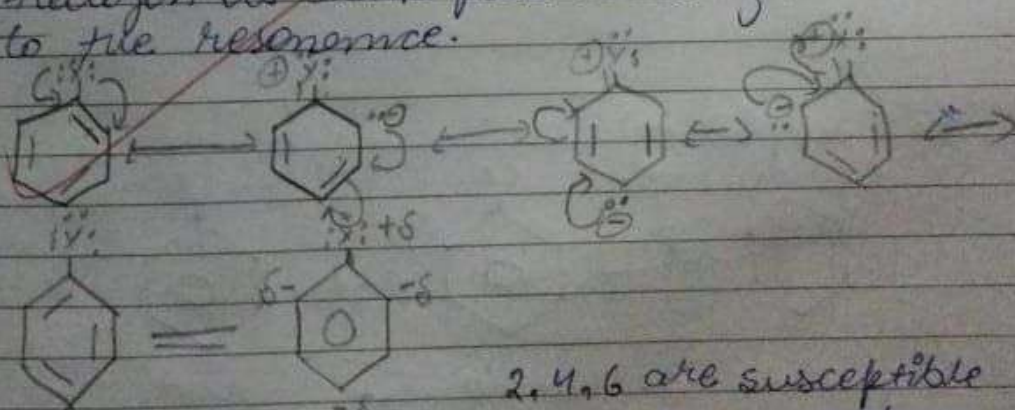 to the resonance.
:Ẍ:
⊕ Ẍ:
⊕ Ẍ:
⊕ Ẍ:
:Ẍ:
:Ẍ: +δ
δ- -δ
-δ
2,4,6 are susceptible